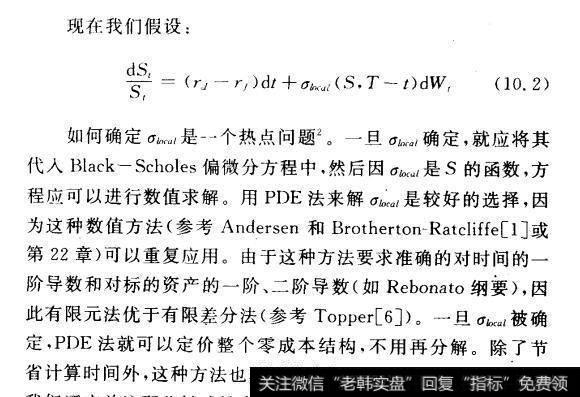 现在我们假设：
dSₜ/Sₜ = (r_d − r_f)dt + σ_local(S, T − t)dWₜ (10.2)
如何确定 σ_local 是一个热点问题²。一旦 σ_local 确定，就应将其
代入 Black－Scholes 偏微分方程中，然后因 σ_local 是 S 的函数，方
程应可以进行数值求解。用 PDE 法来解 σ_local 是较好的选择，因
为这种数值方法（参考 Andersen 和 Brotherton-Ratcliffe[1]或
第 22 章）可以重复应用。由于这种方法要求准确的对时间的一
阶导数和对标的资产的一阶、二阶导数（如 Rebonato 纲要），因
此有限元法优于有限差分法（参考 Topper[6]）。一旦 σ_local 被确
定，PDE 法就可以定价整个零成本结构，不用再分解。除了节
省计算时间外，这种方法也
关注微信"老韩实盘"回复"指标"免费领